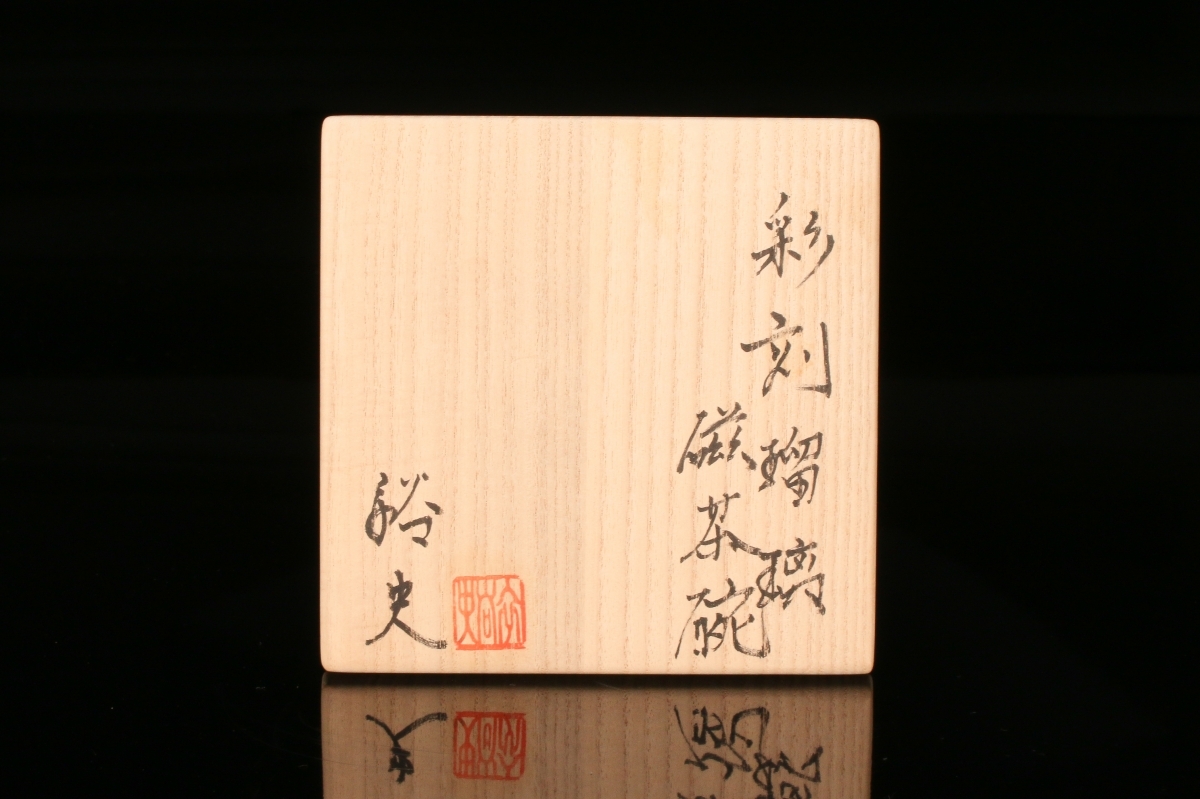 彩刻瑠璃
磁茶碗
裕史